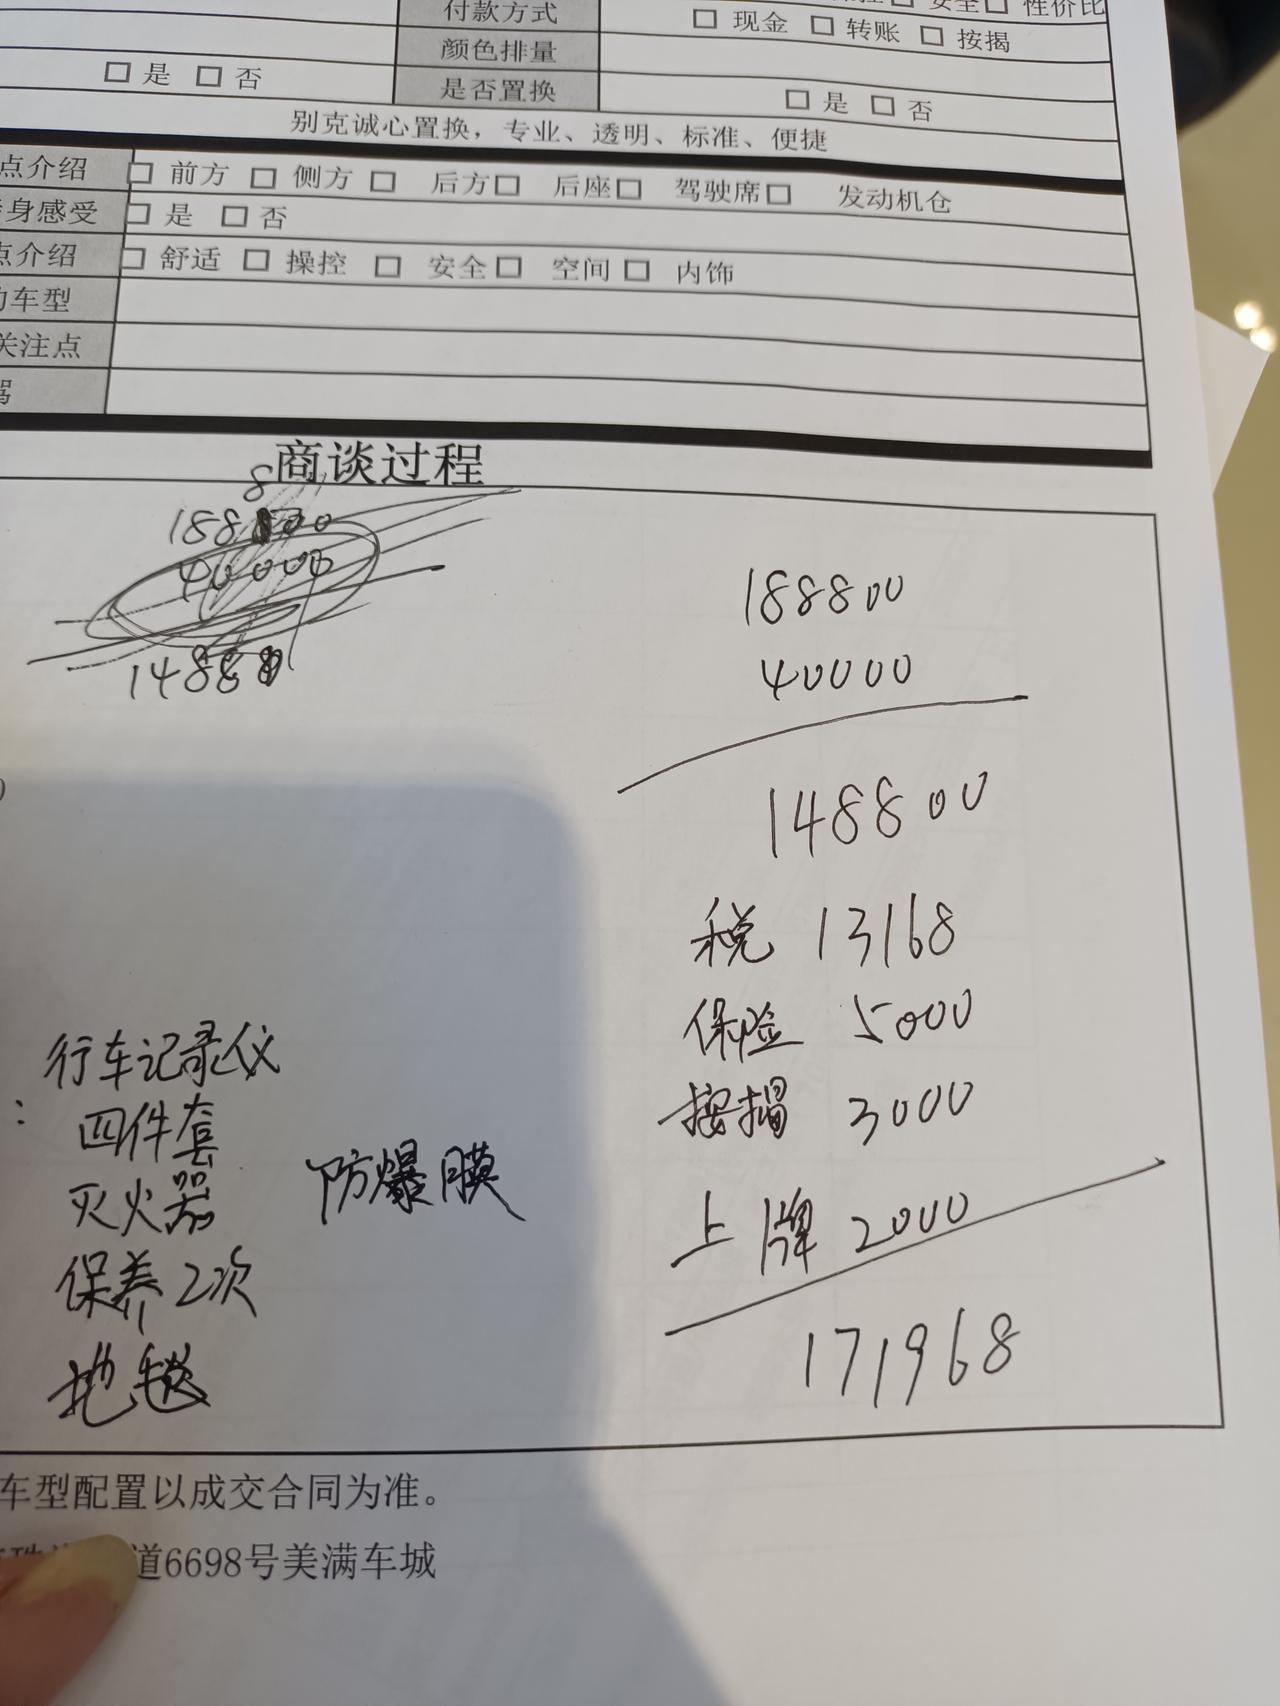 安全□ 性价比
付款方式 □ 现金 □ 转账 □ 按揭
颜色排量
□ 是 □ 否 是否置换 □ 是 □ 否
别克诚心置换，专业、透明、标准、便捷
点介绍 □ 前方 □ 侧方 □ 后方□ 后座□ 驾驶席□ 发动机仓
身感受 □ 是 □ 否
点介绍 □ 舒适 □ 操控 □ 安全□ 空间□ 内饰
车型
关注点
商谈过程
40000
188800
40000
148800
税 13168
保险 5000
按揭 3000
上牌 2000
171968
行车记录仪
四件套
灭火器 防爆膜
保养2次
地毯
车型配置以成交合同为准。
道6698号美满车城